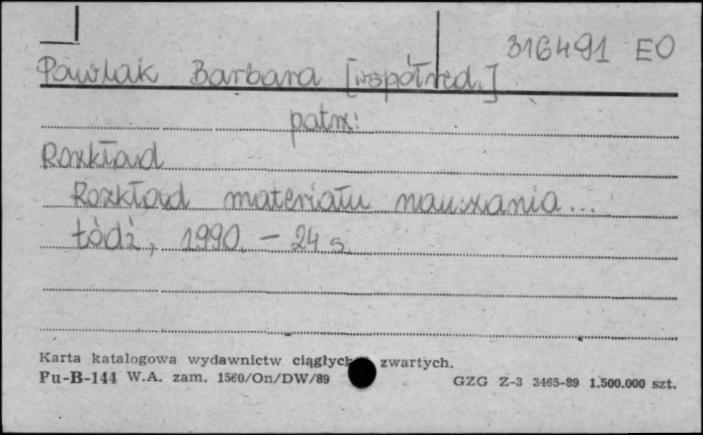 316491 EO
Pawlak Barbara [współred.]
patrz:
Rozkład
Rozkład materiału nauczania...
Łódź, 1990. - 24 s.
Karta katalogowa wydawnictw ciągłych zwartych.
Pu-B-144 W.A. zam. 1560/On/DW/89
GZG Z-3 3465-89 1.500.000 szt.